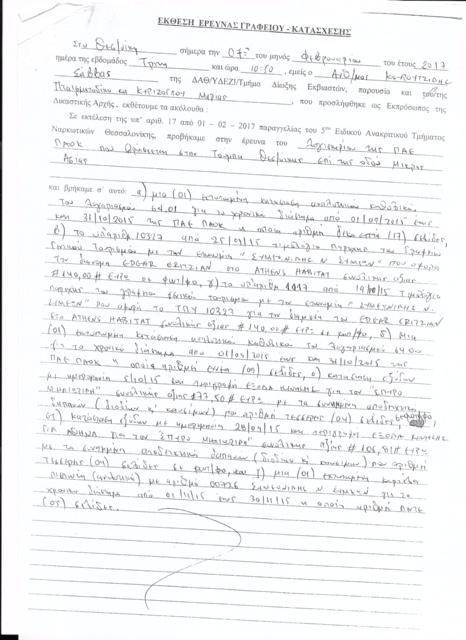 ΕΚΘΕΣΗ ΕΡΕΥΝΑΣ ΓΡΑΦΕΙΟΥ - ΚΑΤΑΣΧΕΣΗΣ
Στη Θεσ/νίκη σήμερα την 07η του μηνός Φεβρουαρίου του έτους 2017
ημέρα της εβδομάδος Τρίτη και ώρα 10:50, εμείς ο Ανθ/μος
Σάββας της ΔΑΘ/ΥΔΕΖΙ/Τμήμα Δίωξης Εκβιαστών, παρουσία και του/της
που προσλήφθηκε ως Εκπρόσωπος της
Δικαστικής Αρχής, εκθέτουμε τα ακόλουθα :
Σε εκτέλεση της υπ' αριθ. 17 από 01 – 02 – 2017 παραγγελίας του 5ου Ειδικού Ανακριτικού Τμήματος
Ναρκωτικών Θεσσαλονίκης, προβήκαμε στην έρευνα του Λογιστηρίου της ΠΑΕ
ΠΑΟΚ που βρίσκεται στην Τούμπα Θεσ/νίκης επί της οδού Μικράς
Ασίας
και βρήκαμε σ' αυτό: α) μια (01) εκτυπωμένη κατάσταση αναλυτικού καθολικού
του λογαριασμού 64.01 για το χρονικό διάστημα από 01/09/2015 έως
και 31/10/2015 της ΠΑΕ ΠΑΟΚ η οποία αριθμεί δεκαεπτά (17) σελίδες,
β) το υπ'αριθμ 10327 από 25/09/15 τιμολόγιο παροχής του γραφείου
γενικού τουρισμού με την επωνυμία "ΣΥΜΕΩΝΙΔΗΣ Ν ΣΥΜΕΩΝ" που αφορά
την διαμονή EDGAR ERITZIAN στο ATHENS HABITAT συνολικής αξίας
#140,00# ευρώ σε φωτ/φο, γ) το υπ'αριθμ 1117 από 19/10/15 τιμολόγιο
παροχής του γραφείου γενικού τουρισμού με την επωνυμία "ΣΥΜΕΩΝΙΔΗΣ Ν.
ΣΥΜΕΩΝ" που αφορά το ΤΠΥ 10327 για την διαμονή του EDGAR ERITZIAN
στο ATHENS HABITAT συνολικής αξίας #140,00# ευρώ σε φωτ/φο, δ) μια
(01) εκτυπωμένη κατάσταση αναλυτικού καθολικού του λογαριασμού 64.00
για το χρονικό διάστημα από 01/09/2015 έως και 31/10/2015 της
ΠΑΕ ΠΑΟΚ η οποία αριθμεί εννέα (09) σελίδες, ε) κατάσταση εξόδων
με ημερομηνία 5/10/15 και περιγραφή ΕΞΟΔΑ ΚΙΝΗΣΗΣ για τον "ΣΠΥΡΟ
συνολικής αξίας #177,50# ευρώ με τα συνημμένα αποδεικτικά
δαπανών (διοδίων κ' καυσίμων) που αριθμεί τέσσερις (04) σελίδες
στ) κατάσταση εξόδων με ημερομηνία 28/09/15 και περιγραφή ΕΞΟΔΑ ΚΙΝΗΣΗΣ
ΓΙΑ ΑΘΗΝΑ για τον ΣΠΥΡΟ συνολικής αξίας # 106,81# ευρώ
με τα συνημμένα αποδεικτικά δαπανών (διοδίων κ' καυσίμων) που αριθμεί
τέσσερις (04) σελίδες σε φωτ/φο, και ζ) μια (01) εκτυπωμένη καρτέλα
(αναλυτική) με αριθμό ΣΥΜΕΩΝΙΔΗΣ Ν. ΣΥΜΕΩΝ για το
χρονικό διάστημα από 01/11/15 έως 30/11/15 η οποία αριθμεί πέντε
(05) σελίδες.